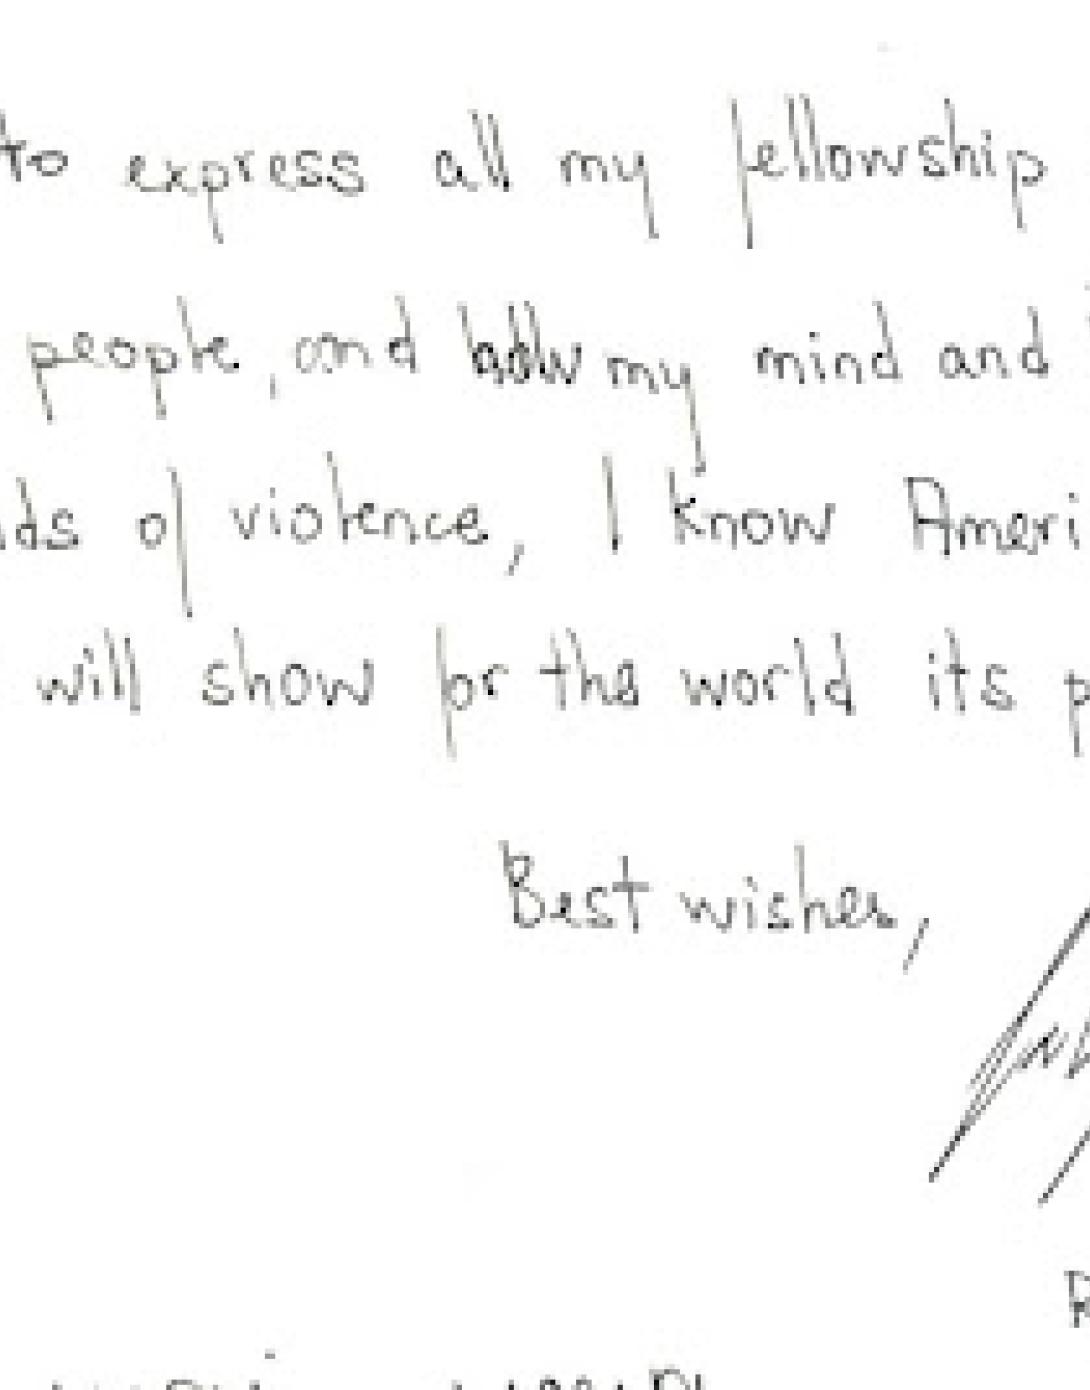 to express all my fellowship
people, and how my mind and
ds of violence, I know Ameri
will show for the world its p
Best wishes,